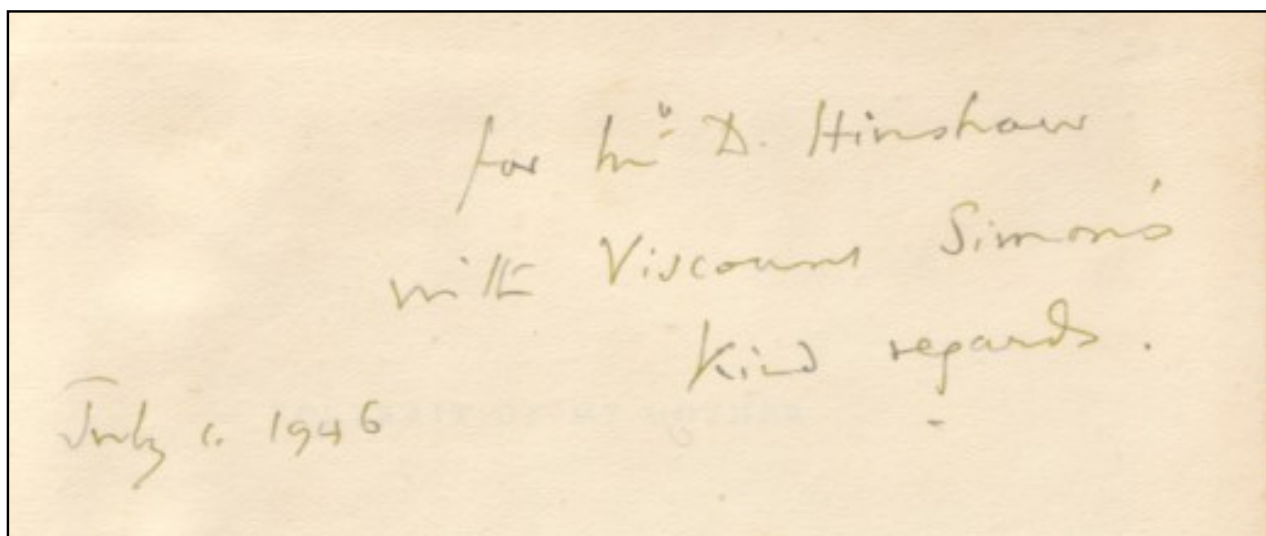 for Mr D. Hinshaw
with Viscount Simon's
Kind regards.
July 1. 1946